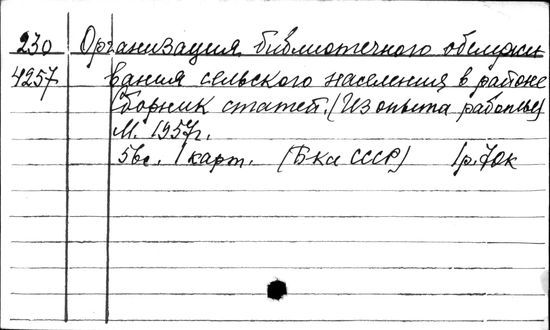 230 Организация библиотечного обслужи
4257 вания сельского населения в районе
Сборник статей. (Из опыта работы)
М. 1957г.
56с. 1 карт. (Б-ка СССР) 1р.70к